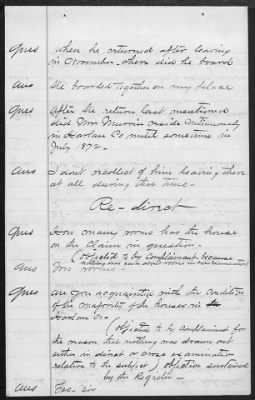 Ques when he returned after leaving
in November where did he board
Ans We boarded together on my place
Ques After the return last mentioned
did Mr. reside continuously
in Harlan Co until sometime in
July 1872 -
Ans I don't recollect of him leaving there
at all during that time -
Re-direct
Ques How many rooms has the house
on the Claim in question -
(Objected to by Complainant because
nothing was said about rooms in cross examination)
Ans rooms -
Ques Are you acquainted with the condition
of the majority of the houses in
Harlan Co -
(Objected to by complainant for
the reason that nothing was drawn out
either in direct or cross examination
relation to the subject) objection sustained
by the Register -
Ans Yes sir